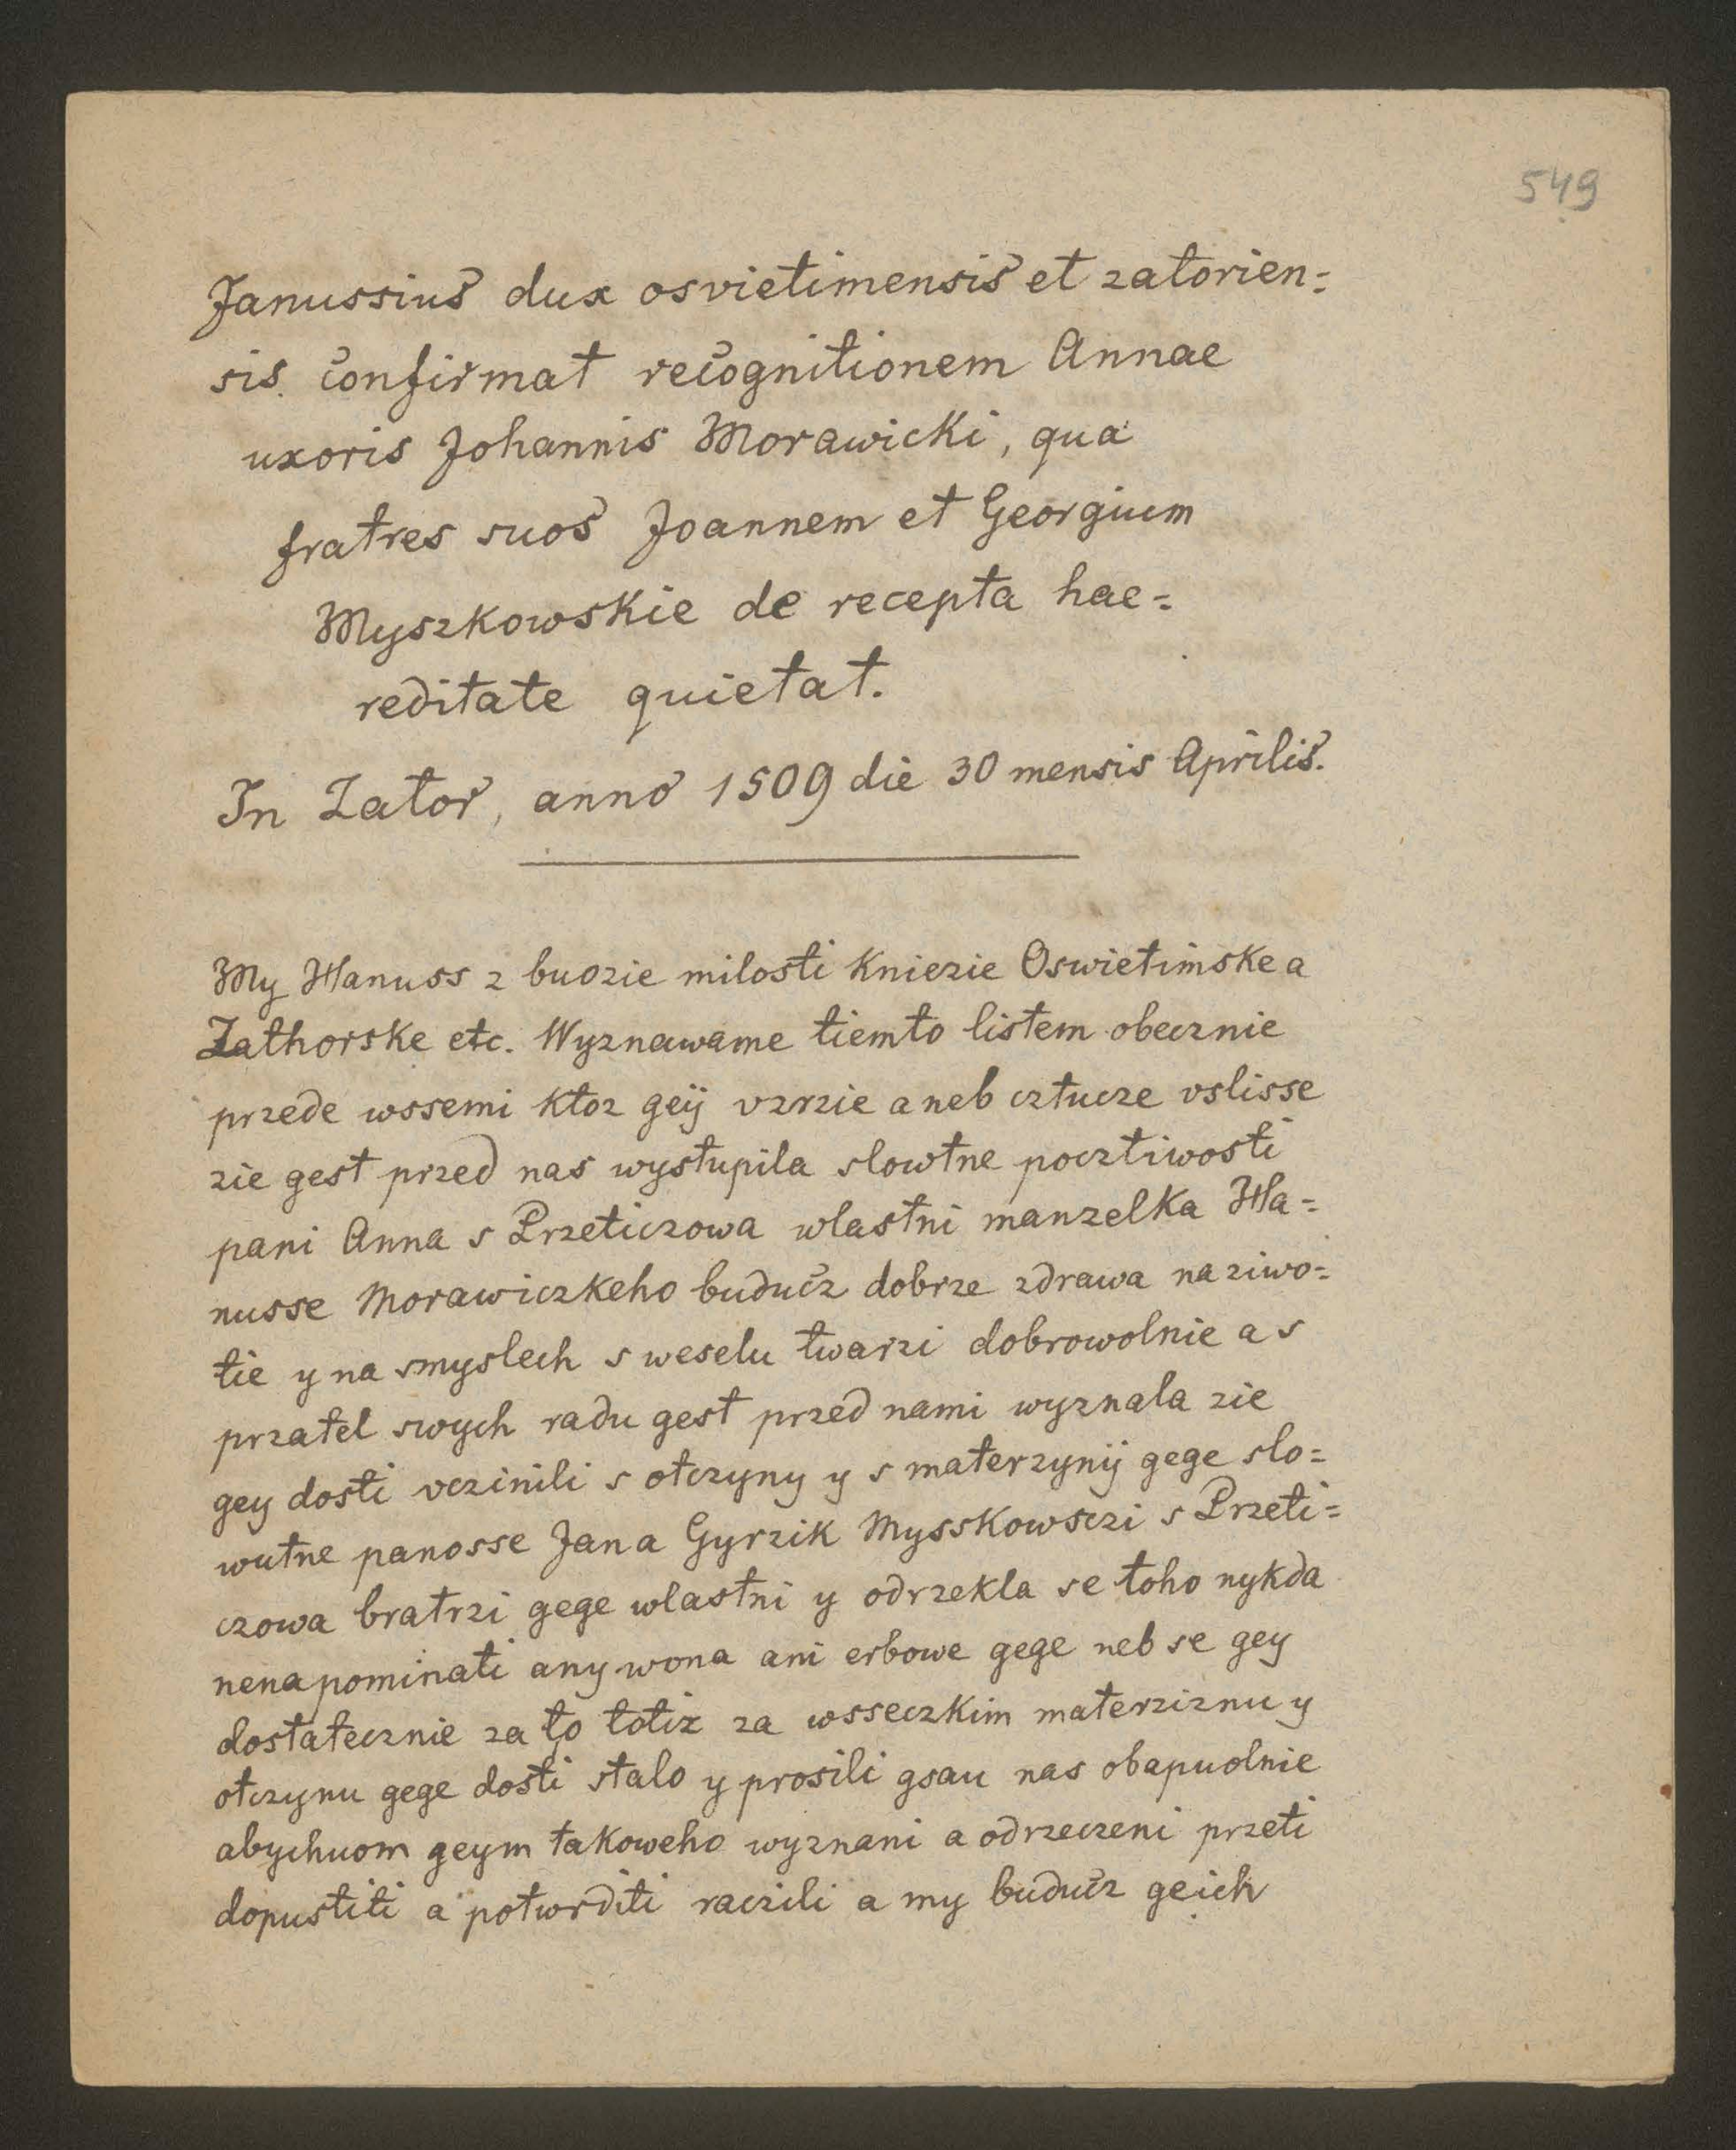 549
Janussius dux osvietimensis et zatorien=
sis confirmat recognitionem Annae
uxoris Johannis Morawicki, qua
fratres suos Joannem et Georgium
Myszkowskie de recepta hae=
reditate quietat.
In Zator, anno 1509 die 30 mensis Aprilis.
My Hanuss z buozie milosti Kniezie Oswietimske a
Zathorske etc. Wyznawame tiemto listem obecznie
przede wssemi ktoz geÿ vzrzie aneb cztucze vslisse
zie gest przed nas wystupila slowtne pocztiwosti
pani Anna s Przeticzowa wlastni manzelka Ha=
nusse Morawiczkeho buducz dobrze zdrawa na ziwo=
tie y na smyslech s weselu twarzi dobrowolnie a s
przatel swych radu gest przed nami wyznala zie
gey dosti vczinili s otczyny y s materzynÿ gege slo=
wutne panosse Jan a Gyrzik Mysskowsczi s Przeti=
czowa bratrzi gege wlastni y odrzekla se toho nykda
nenapominati any wona ani erbowe gege neb se gey
dostatecznie za to totiz za wsseczkim materziznu y
otczynu gege dosti stalo y prosili gsau nas obapuolnie
abychuom geym takoweho wyznani a odrzeczeni przeti
dopustiti a potwrditi raczili a my buducz geich